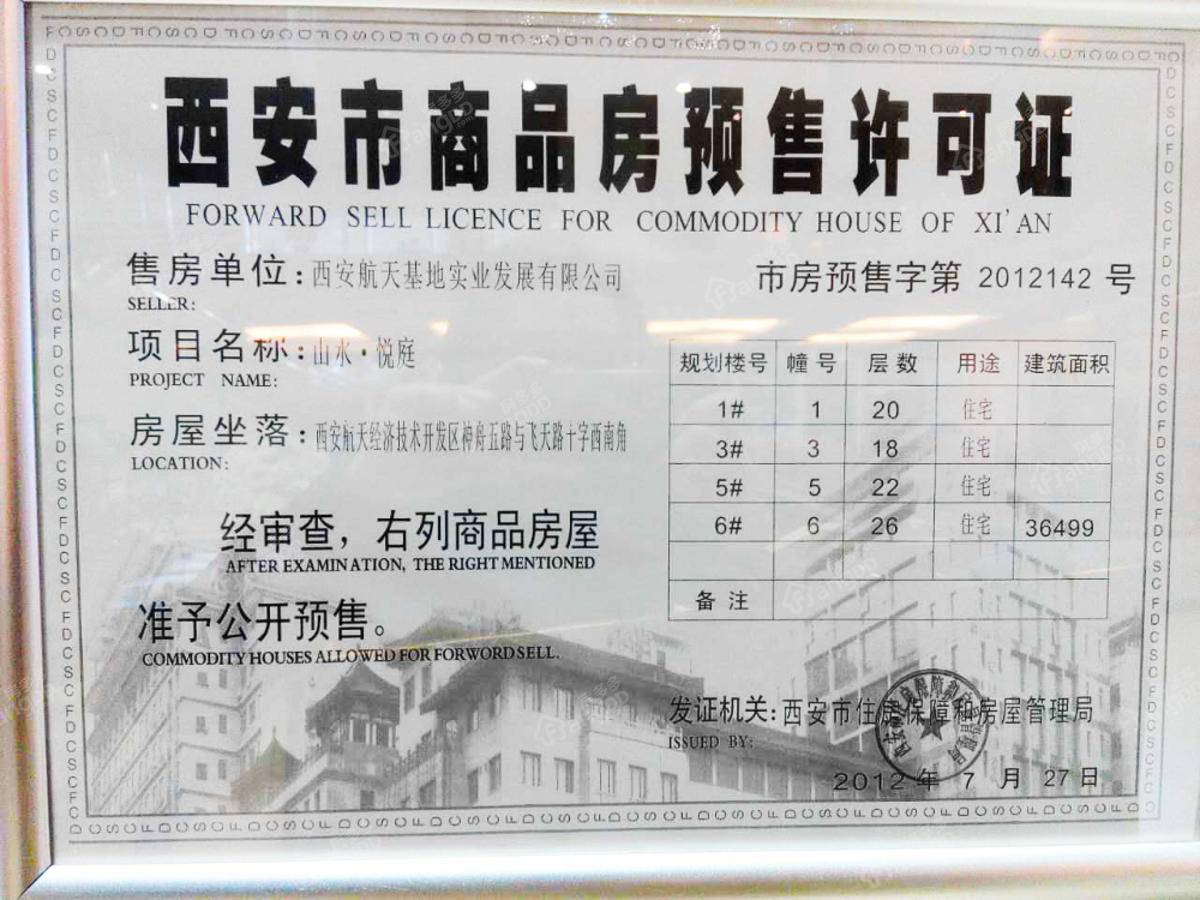 西安市商品房预售许可证
FORWARD SELL LICENCE FOR COMMODITY HOUSE OF XI'AN
售房单位:西安航天基地实业发展有限公司
SELLER:
市房预售字第 2012142 号
项目名称:山水·悦庭
PROJECT NAME:
房屋坐落:西安航天经济技术开发区神舟五路与飞天路十字西南角
LOCATION:
规划楼号 幢号 层数 用途 建筑面积
1# 1 20 住宅
3# 3 18 住宅
5# 5 22 住宅
6# 6 26 住宅 36499
备注
经审查，右列商品房屋
AFTER EXAMINATION, THE RIGHT MENTIONED
准予公开预售。
COMMODITY HOUSES ALLOWED FOR FORWORD SELL.
发证机关:西安市住房保障和房屋管理局
ISSUED BY:
2012 年 7 月 27 日